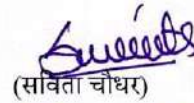 (सविता चौधर)